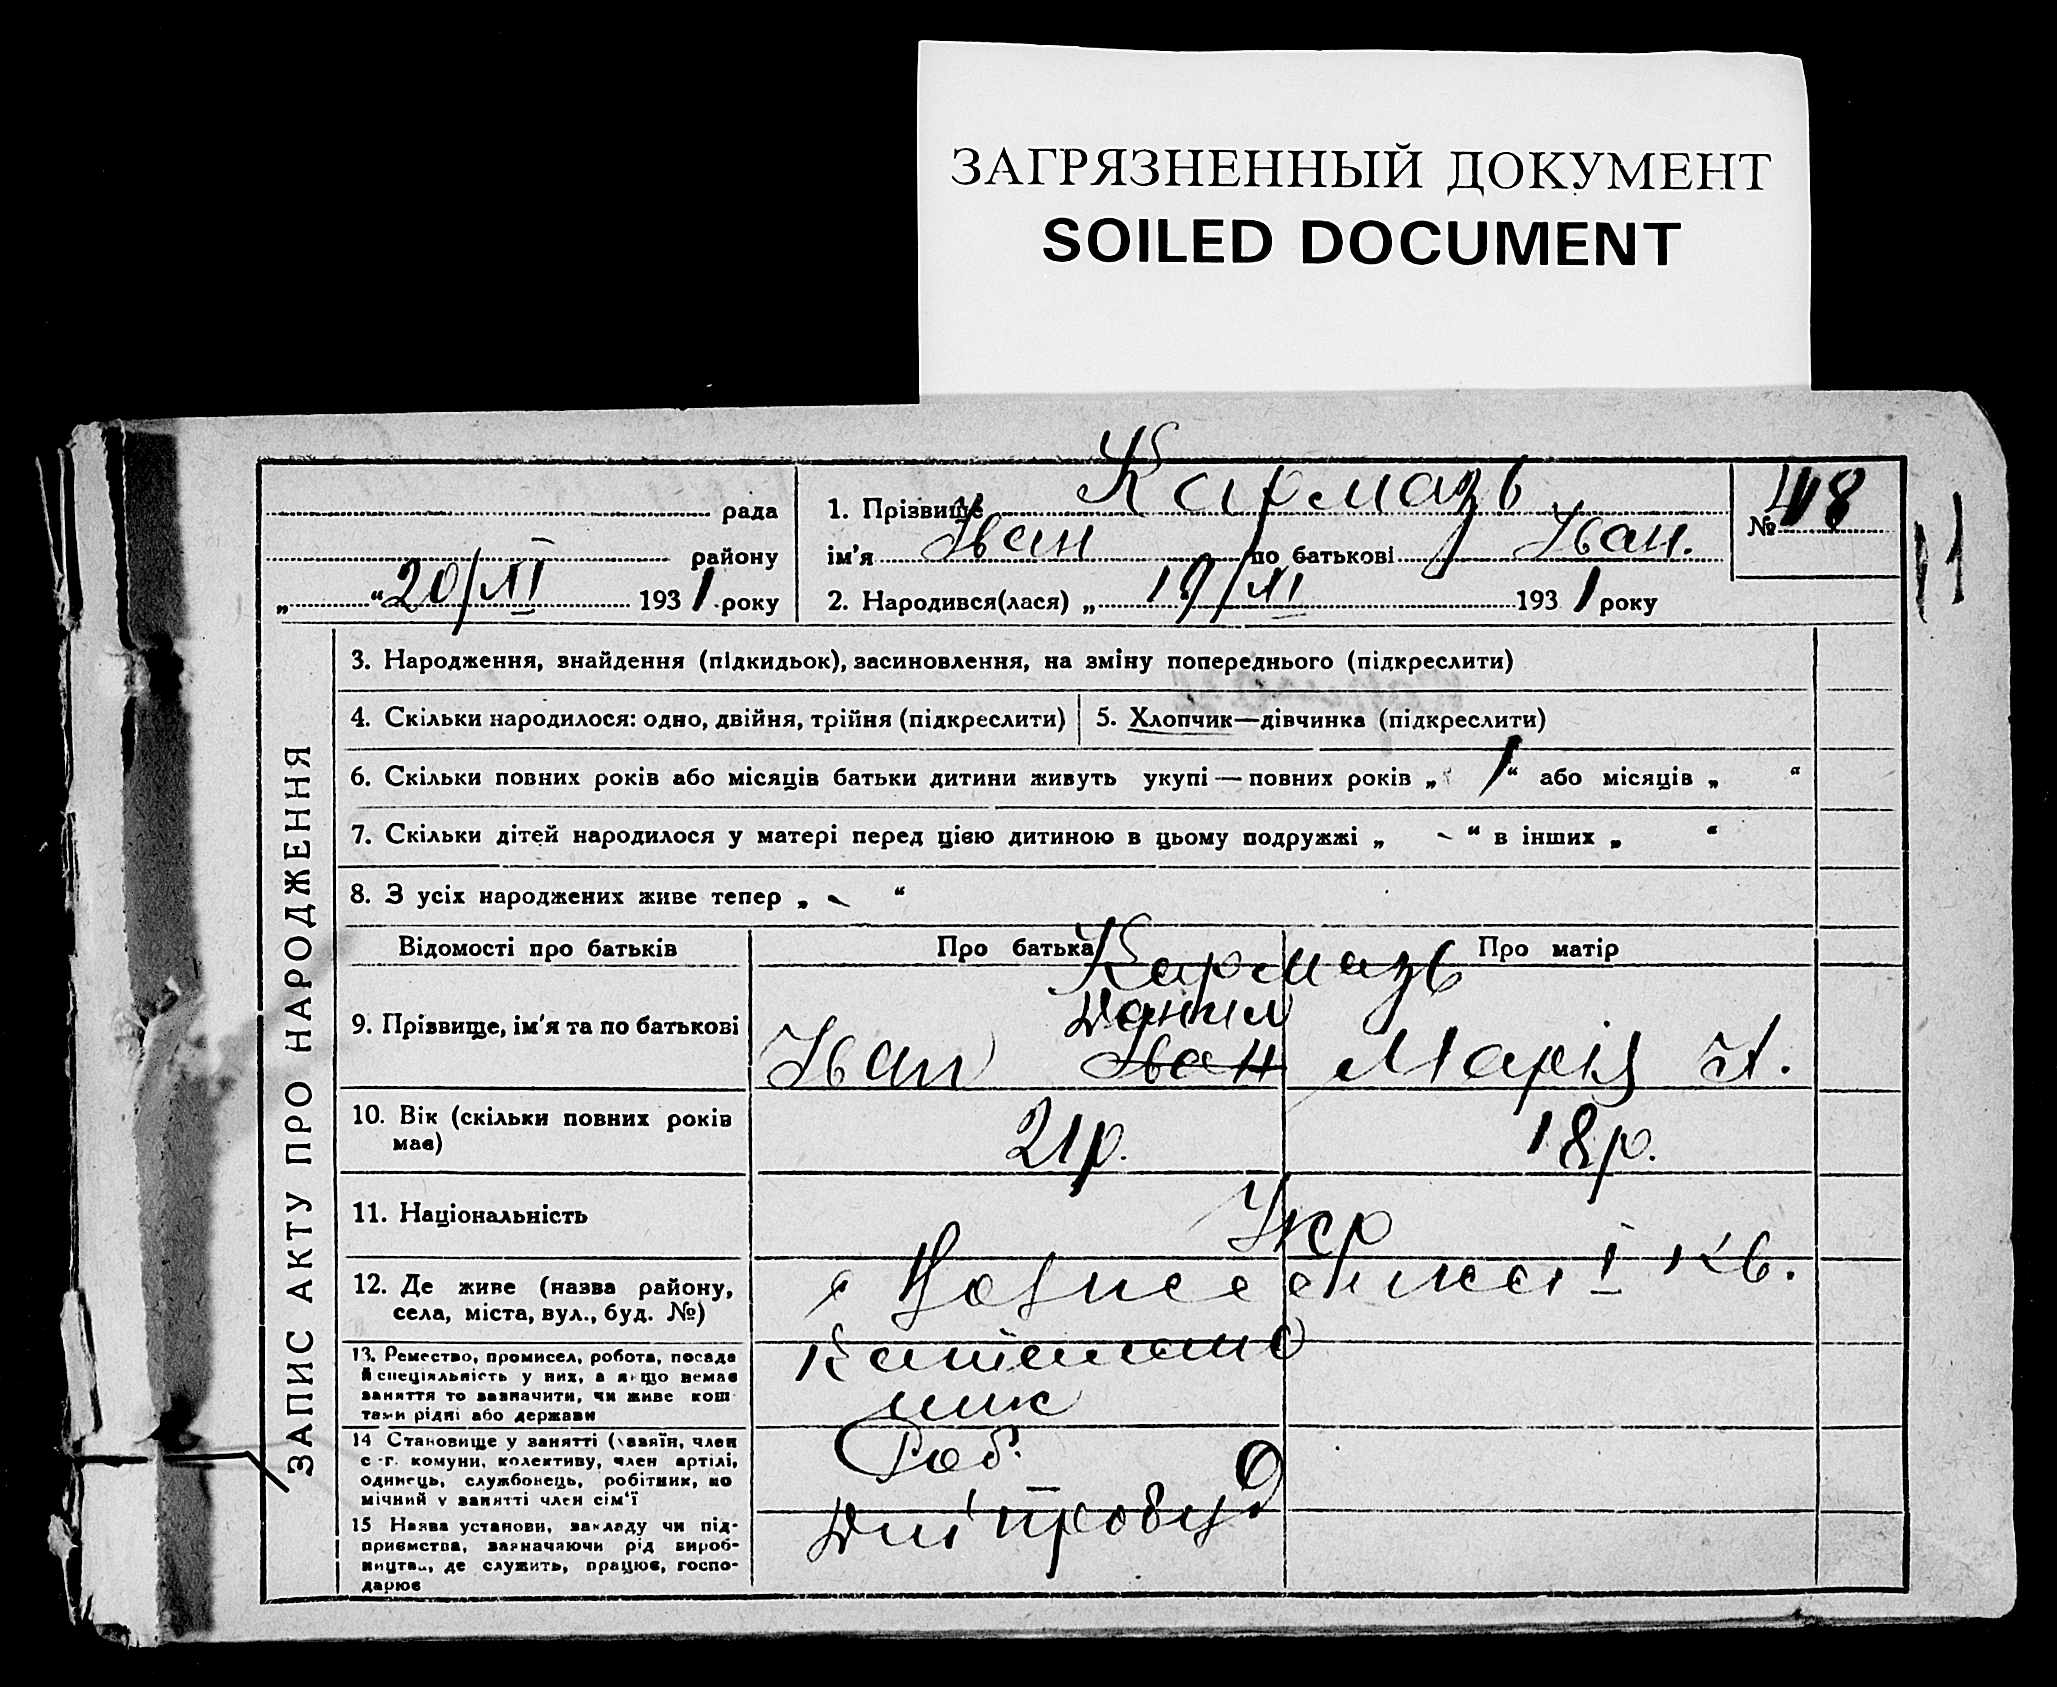 ЗАГРЯЗНЕННЫЙ ДОКУМЕНТ
SOILED DOCUMENT
ЗАПИС АКТУ ПРО НАРОДЖЕННЯ
рада
району
„ “ 20/XI 1931 року
1. Прізвище Кармазь
ім'я Іван по батькові Іван.
2. Народився(лася) „ 19/XI 1931 року
№ 48
11
3. Народження, знайдення (підкидьок), засиновлення, на зміну попереднього (підкреслити)
4. Скільки народилося: одно, двійня, трійня (підкреслити) 5. Хлопчик—дівчинка (підкреслити)
6. Скільки повних років або місяців батьки дитини живуть укупі — повних років „ 1 “ або місяців „ “
7. Скільки дітей народилося у матері перед цією дитиною в цьому подружжі „ - “ в інших „ “
8. З усіх народжених живе тепер „ - “
Відомості про батьків Про батька Про матір
Кармазь
9. Прізвище, ім'я та по батькові
Данил
Іван Іван Марія А.
10. Вік (скільки повних років
має)
21р. 18р.
11. Національність
Укр
12. Де живе (назва району,
села, міста, вул., буд. №)
I кв.
13. Ремество, промисел, робота, посада
й спеціяльність у них, а якщо немає
заняття то зазначити, чи живе кош-
тами рідні або держави
14 Становище у занятті (хазяїн, член
с.-г. комуни, колективу, член артілі,
одинець, службовець, робітник, по
мічний у занятті член сім'ї
Роб.
15 Назва установи, закладу чи під-
приємства, зазначаючи рід вироб-
ництва, де служить, працює, госпо-
дарює